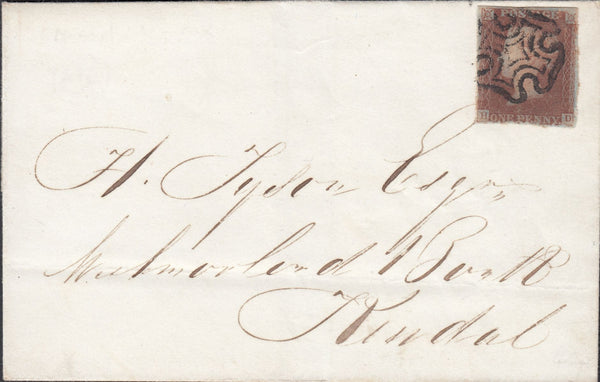 POSTAGE
ONE PENNY D
H. Tyson Esqr
Westmorland Bank
Kendal